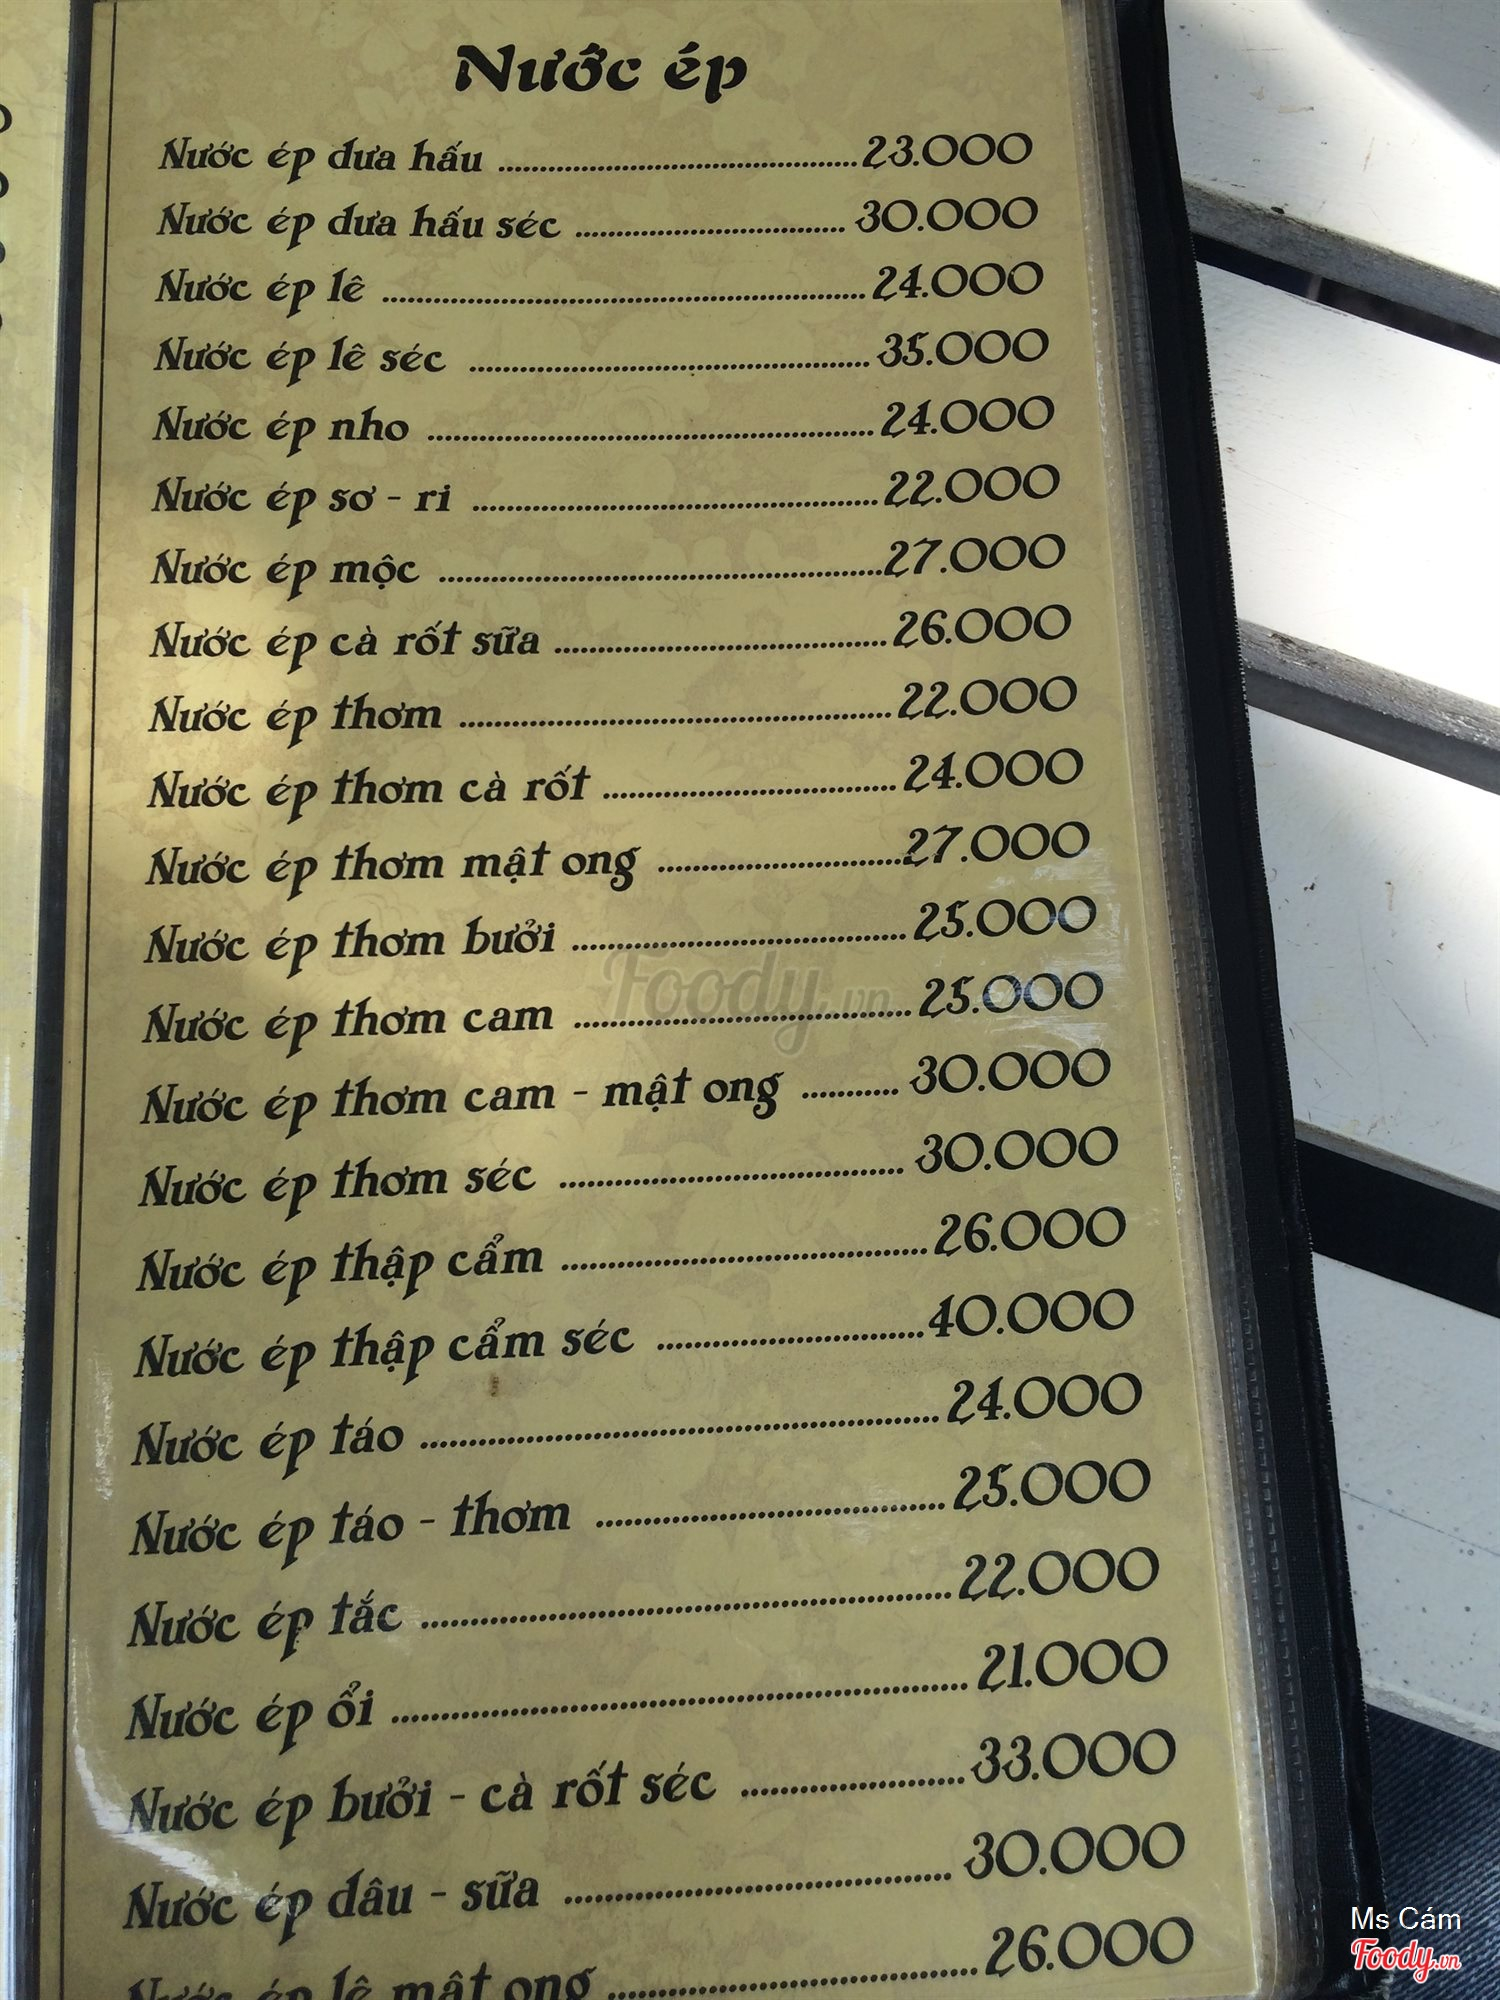 Nước ép
Nước ép dưa hấu ........................................... 23.000
Nước ép dưa hấu séc ................................ 30.000
Nước ép lê .......................................................... 24.000
Nước ép lê séc ................................................ 35.000
Nước ép nho ..................................................... 24.000
Nước ép sơ - ri ................................................ 22.000
Nước ép mộc ..................................................... 27.000
Nước ép cà rốt sữa ........................................ 26.000
Nước ép thơm .................................................... 22.000
Nước ép thơm cà rốt ................................... 24.000
Nước ép thơm mật ong ............................. 27.000
Nước ép thơm bưởi ....................................... 25.000
Nước ép thơm cam ........................................ 25.000
Nước ép thơm cam - mật ong ........... 30.000
Nước ép thơm séc ......................................... 30.000
Nước ép thập cẩm ........................................... 26.000
Nước ép thập cẩm séc ............................... 40.000
Nước ép táo ............................................................. 24.000
Nước ép táo - thơm ......................................... 25.000
Nước ép tắc ............................................................. 22.000
Nước ép ổi .................................................................. 21.000
Nước ép bưởi - cà rốt séc ......................... 33.000
Nước ép dâu - sữa ........................................... 30.000
Nước ép lê mật ong ......................................... 26.000
Foody.vn
Ms Cám
Foody.vn